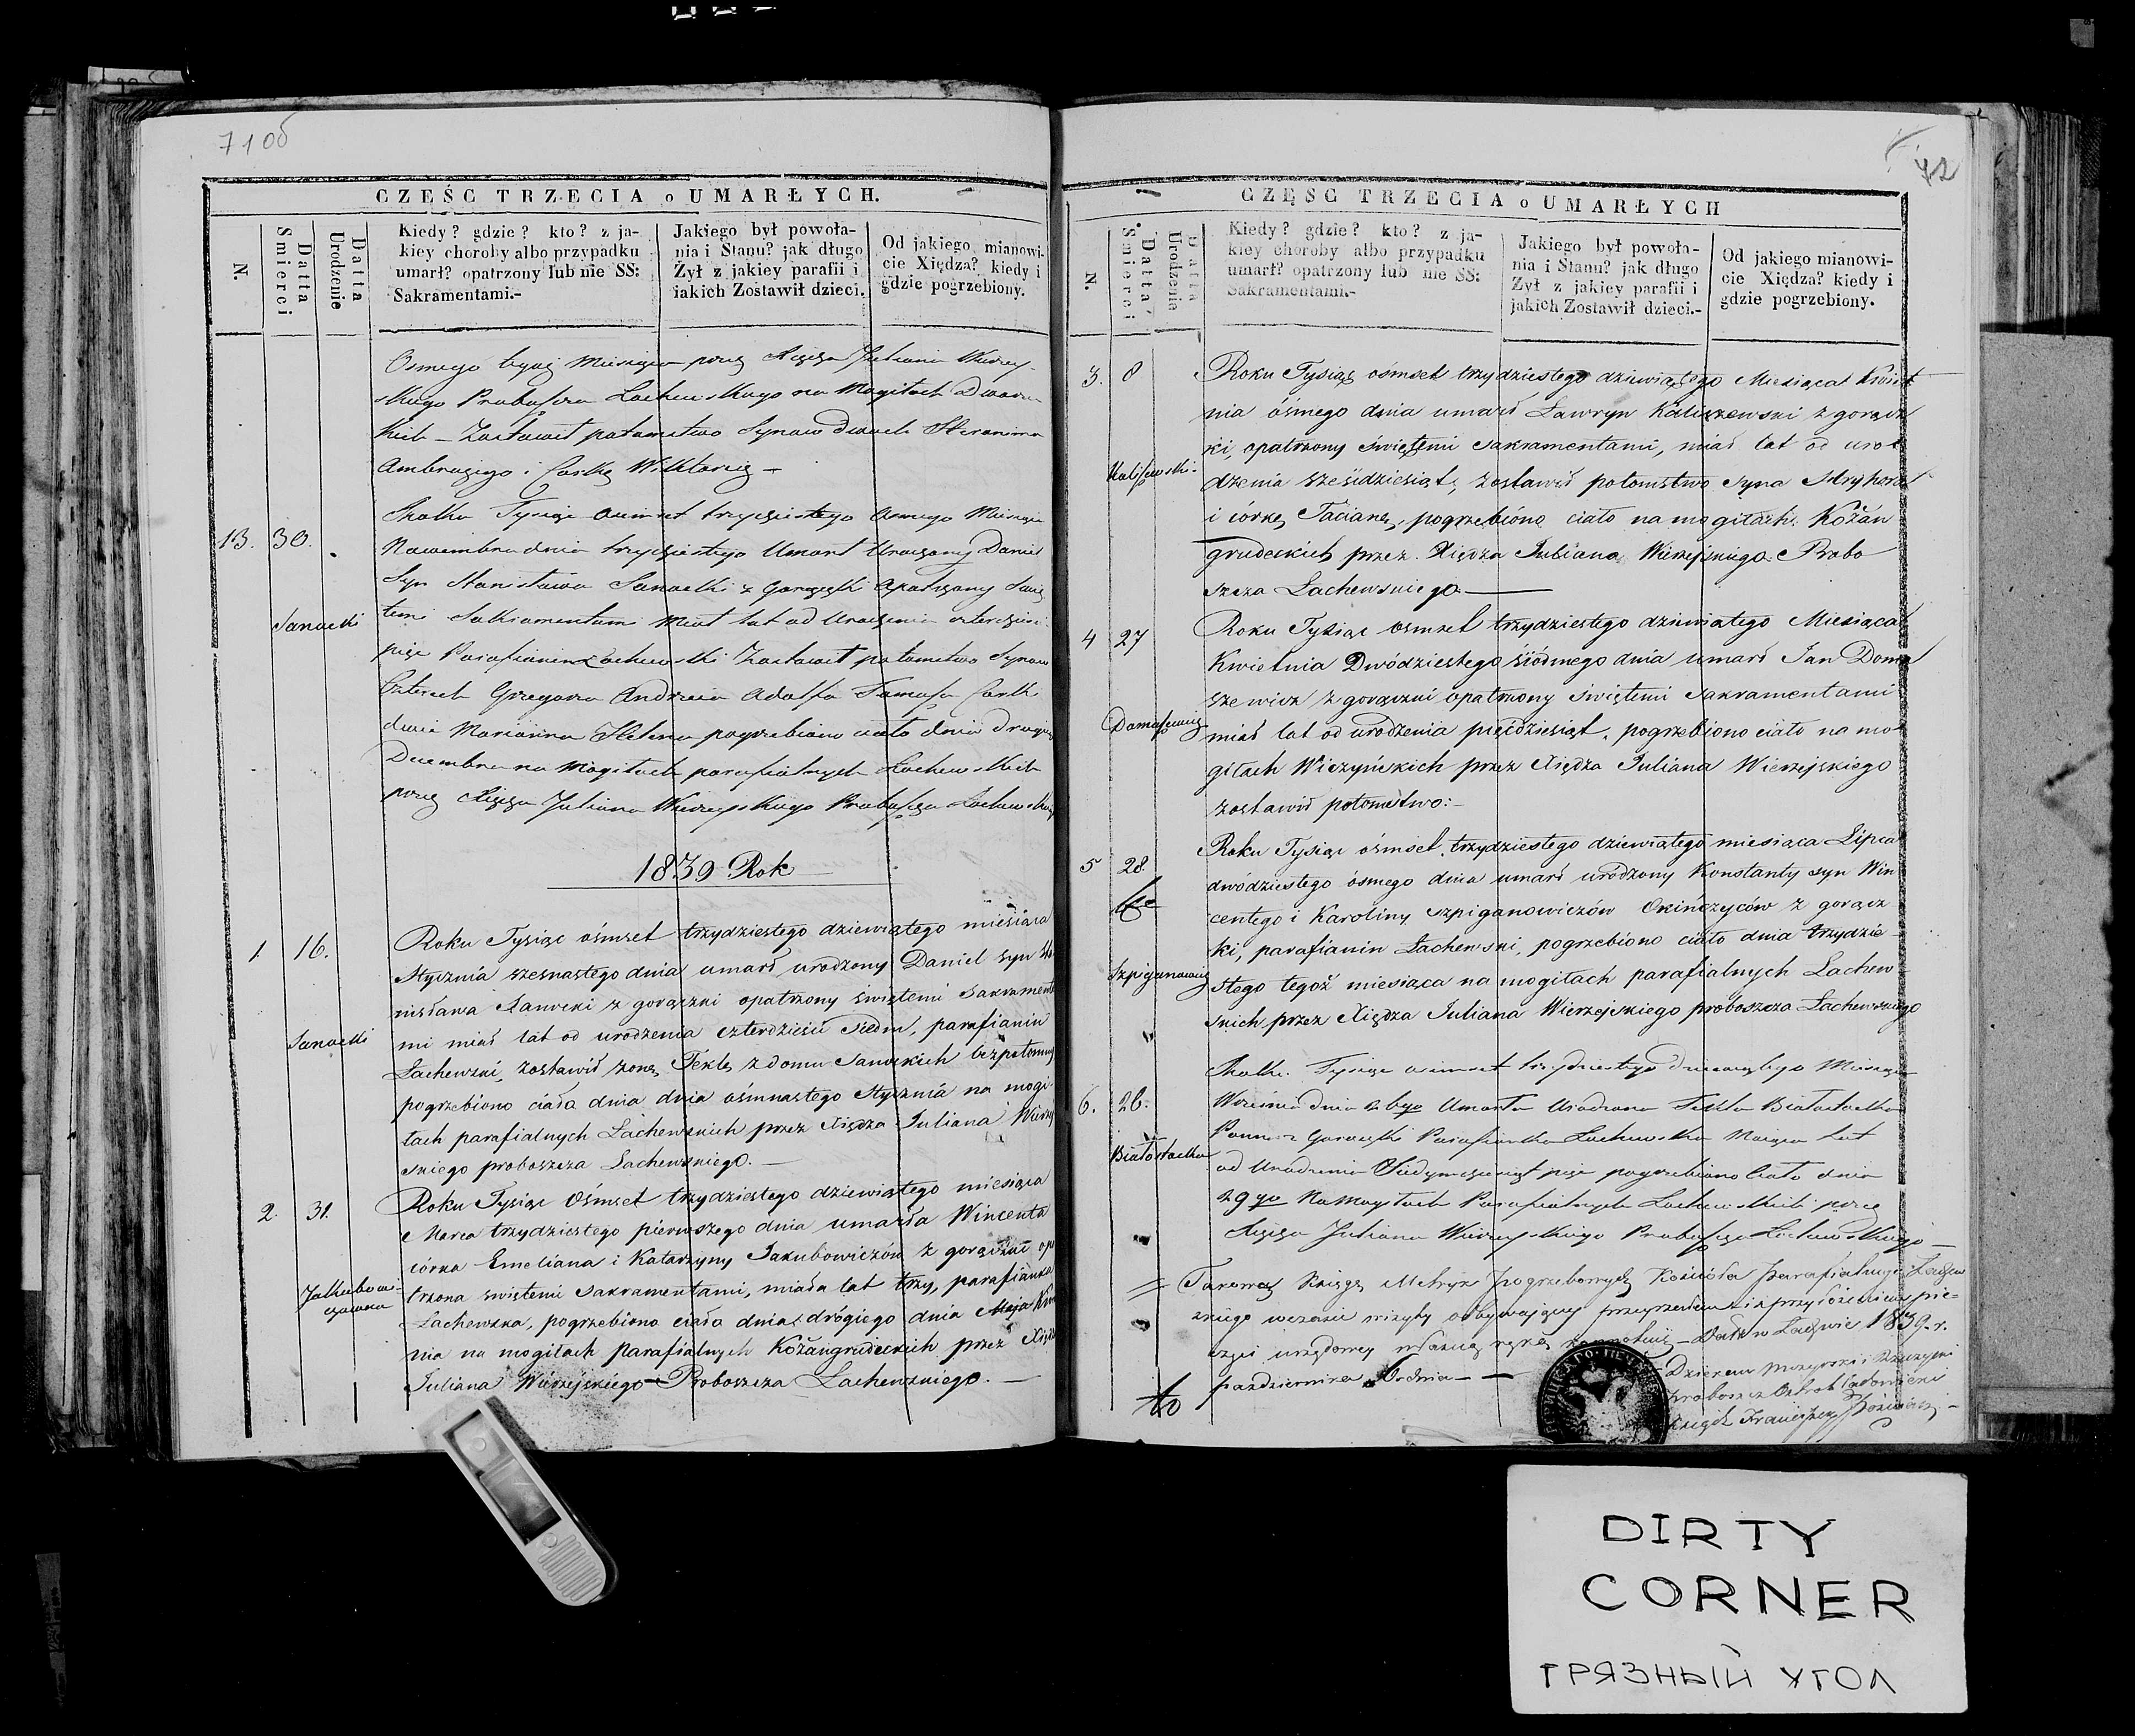 71об
CZEŚC TRZECIA o UMARŁYCH.
N.
Datta Smierci
Datta Urodzenie
Kiedy? gdzie? kto? z ja-
kiey choroby albo przypadku
umarł? opatrzony lub nie SS:
Sakramentami.-
Jakiego był powoła-
nia i Stanu? jak długo
Żył z jakiey parafii i
iakich Zostawił dzieci.
Od jakiego mianowi-
cie Xiędza? kiedy i
gdzie pogrzebiony.
Osmego tegoż Miesiąca przez Xięza Juliana Wierzey-
skiego Probosza Lachewskiego na Mogiłach
Zostawił potomstwo Synow dwoch
Ambrożego i Corkę Wiktorię —
13. 30.
Sanocki
Roku Tysiąc osimset trzydziestego osmego Miesiąca
Nowembra dnia trzydziestego Umarł Urodzony Daniel
Syn Stanisława Sanocki z Gorączki Opatrzony Swię
temi Sakramentami Miał lat od Urodzenia
Parafianin Lachewski Zostawił potomstwo Synow
Czterech Grzegorza Andrzeia Adolfa Tomasza Corki
dwie Marianna Helena pogrzebiono ciało dnia drugiego
Decembra na Mogiłach parafialnych Lachewskich
przez Xięza Juliana Wierzeyskiego Probosza Lachewskiego
1839 Rok
1. 16.
Sanocki
Roku Tysiąc ośmset trzydziestego dziewiątego miesiąca
Stycznia szesnastego dnia umarł urodzony Daniel syn Sta
nisława Sanocki z gorączki opatrzony świętemi Sakramenta
mi miał lat od urodzenia czterdzieści siedm, parafianin
Lachewski, zostawił żonę Teklę z domu Sanockich bezpotomny
pogrzebiono ciała dnia dnia ośmnastego Stycznia na mogi
łach parafialnych Lachewskich przez Xiędza Juliana Wierzey
skiego proboszcza Lachewskiego. —
2. 31.
Jakubow-
czowna
Roku Tysiąc Ośmset trzydziestego dziewiątego miesiąca
Marca trzydziestego pierwszego dnia umarła Wincenta
córka Emeliana i Katarzyny Jakubowiczów z gorączki opa
trzona świętemi Sakramentami, miała lat trzy, parafianka
Lachewska, pogrzebiono ciała dnia drógiego dnia
nia na mogiłach parafialnych Kożangrudeckich przez Xiędza
Juliana Wierzejskiego Proboszcza Lachewskiego. —
72
CZĘSC TRZECIA o UMARŁYCH
N.
Datta Smierci
Datta Urodzenie
Kiedy? gdzie? kto? z ja-
kiey choroby albo przypadku
umarł? opatrzony lub nie SS:
Sakramentami.-
Jakiego był powoła-
nia i Stanu? jak długo
Żył z jakiey parafii i
jakich Zostawił dzieci.-
Od jakiego mianowi-
cie Xiędza? kiedy i
gdzie pogrzebiony.
3. 8
Kaliszewski-
Roku Tysiąc ośmset trzydziestego dziewiątego Miesiąca Kwiet
nia ósmego dnia umarł Ławryn Kaliszewski z gorącz
ki, opatrzony świętemi Sakramentami, miał lat od uro
dzenia sześćdziesiąt, zostawił potomstwo syna Hryhora
i córkę Tacianę, pogrzebióno ciało na mogiłach Kożan
grudeckich przez Xiędza Juliana Wierzejskiego Probo
szcza Lachewskiego —
4 27
Domaszewicz
Roku Tysiąc ośmset trzydziestego dziewiątego Miesiąca
Kwietnia Dwódziestego siódmego dnia umarł Jan Doma
szewicz z gorączki opatrzony świętemi Sakramentami
miał lat od urodzenia pięćdziesiąt, pogrzebiono ciało na mo
giłach Wiczyńskich przez Xiędza Juliana Wierzejskiego
zostawił potomstwo:-
5 28.
Szpiganowicz
Roku Tysiąc ośmset trzydziestego dziewiątego miesiąca Lipca
dwódziestego ósmego dnia umarł uródzony Konstanty syn Win
centego i Karoliny Szpiganowiczów Okińczyców z gorącz
ki, parafianin Łachewski, pogrzebiono ciało dnia trzydzie
stego tegoż miesiąca na mogiłach parafialnych Lachew
skich przez Xiędza Juliana Wierzejskiego próboszcza Lachewskiego
6. 26.
Białostocka
Roku Tysiąc osimset trzydziestego dziewiątego Miesiąca
Wrzesnia dnia 26go Umarła Urodzona Tekla Białostocka
Panna z Gorączki Parafianka Lachewska Maiąca Lat
od Urodzenia Siedymdziesiąt pogrzebiono Ciało dnia
29go Na Mogiłach Parafialnych Lachewskich przez
Xięza Juliana Wierzeyskiego Probosza Lachewskiego —
Takową Księgę Metryk pogrzebowych Kościóła parafialnego Lachew
skiego wczasie wizyty odbywającey przeyrzałem i z przyłożeniem pie-
częci urzędowey własną ręką — Datt w Lachwie 1839. r.
października 6. dnia —
Dziekan Mozyrski i Rzeczycki
Ksiądz Franciszek
DIRTY
CORNER
ГРЯЗНЫЙ УГОЛ